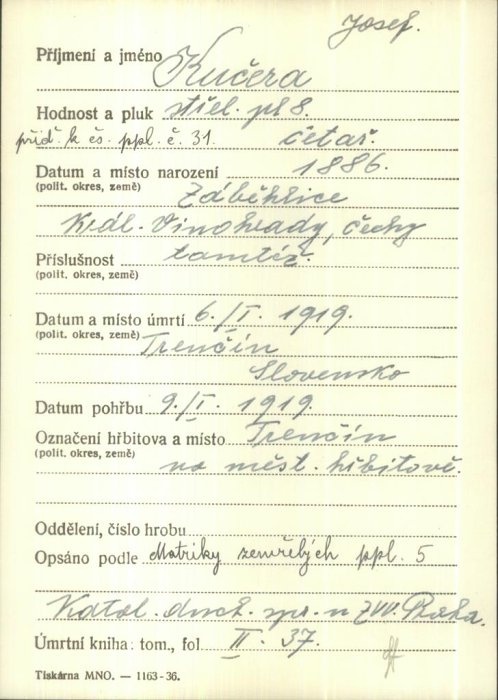 Josef.
Příjmení a jméno Kučera
Hodnost a pluk střel. pl 8.
příd. k čs. ppl. č. 31. četař.
Datum a místo narození 1886.
(polit. okres, země) Záběhlice
Král. Vinohrady, Čechy
Příslušnost tamtéž.
(polit. okres, země)
Datum a místo úmrtí 6./I. 1919.
(polit. okres, země) Trenčín
Slovensko
Datum pohřbu 9./I. 1919.
Označení hřbitova a místo Trenčín
(polit. okres, země) na měst. hřbitově.
Oddělení, číslo hrobu
Opsáno podle Matriky zemřelých ppl. 5
Katol. duch. spr. u ZVV. Praha.
Úmrtní kniha: tom., fol II. 37.
Tiskárna MNO. — 1163-36.